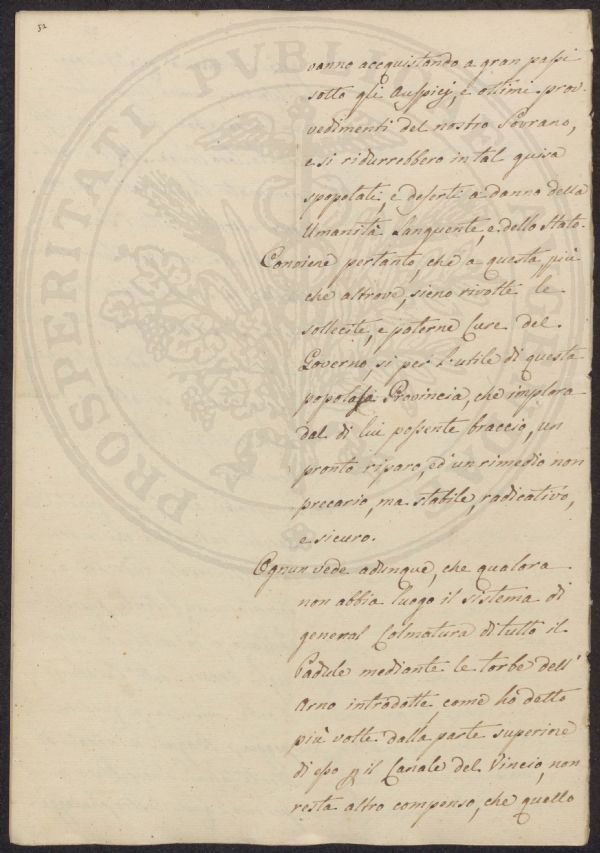 52
vanno acquistando a gran passi
sotto gli Auspicj, e ottimi prov-
vedimenti del nostro Sovrano,
e si ridurrebbero in tal guisa
spopolati, e deserti a danno della
Umanità Languente, e dello Stato.
Conviene pertanto, che a questa più
che altrove, sieno rivolte le
sollecite, e paterne Cure del
Governo, si per l'utile di questa
popolosa Provincia, che implora
dal di lui possente braccio, un
pronto riparo, ed un rimedio non
precario, ma stabile, radicativo,
e sicuro.
Ognun vede adunque, che qualora
non abbia luogo il sistema di
general Colmatura di tutto il
Padule mediante le torbe dell'
Arno introdotte, come ho detto
più volte dalla parte superiore
di esso p il Canale del Vincio, non
resta altro compenso, che quello
PROSPERITATI PUBLIC